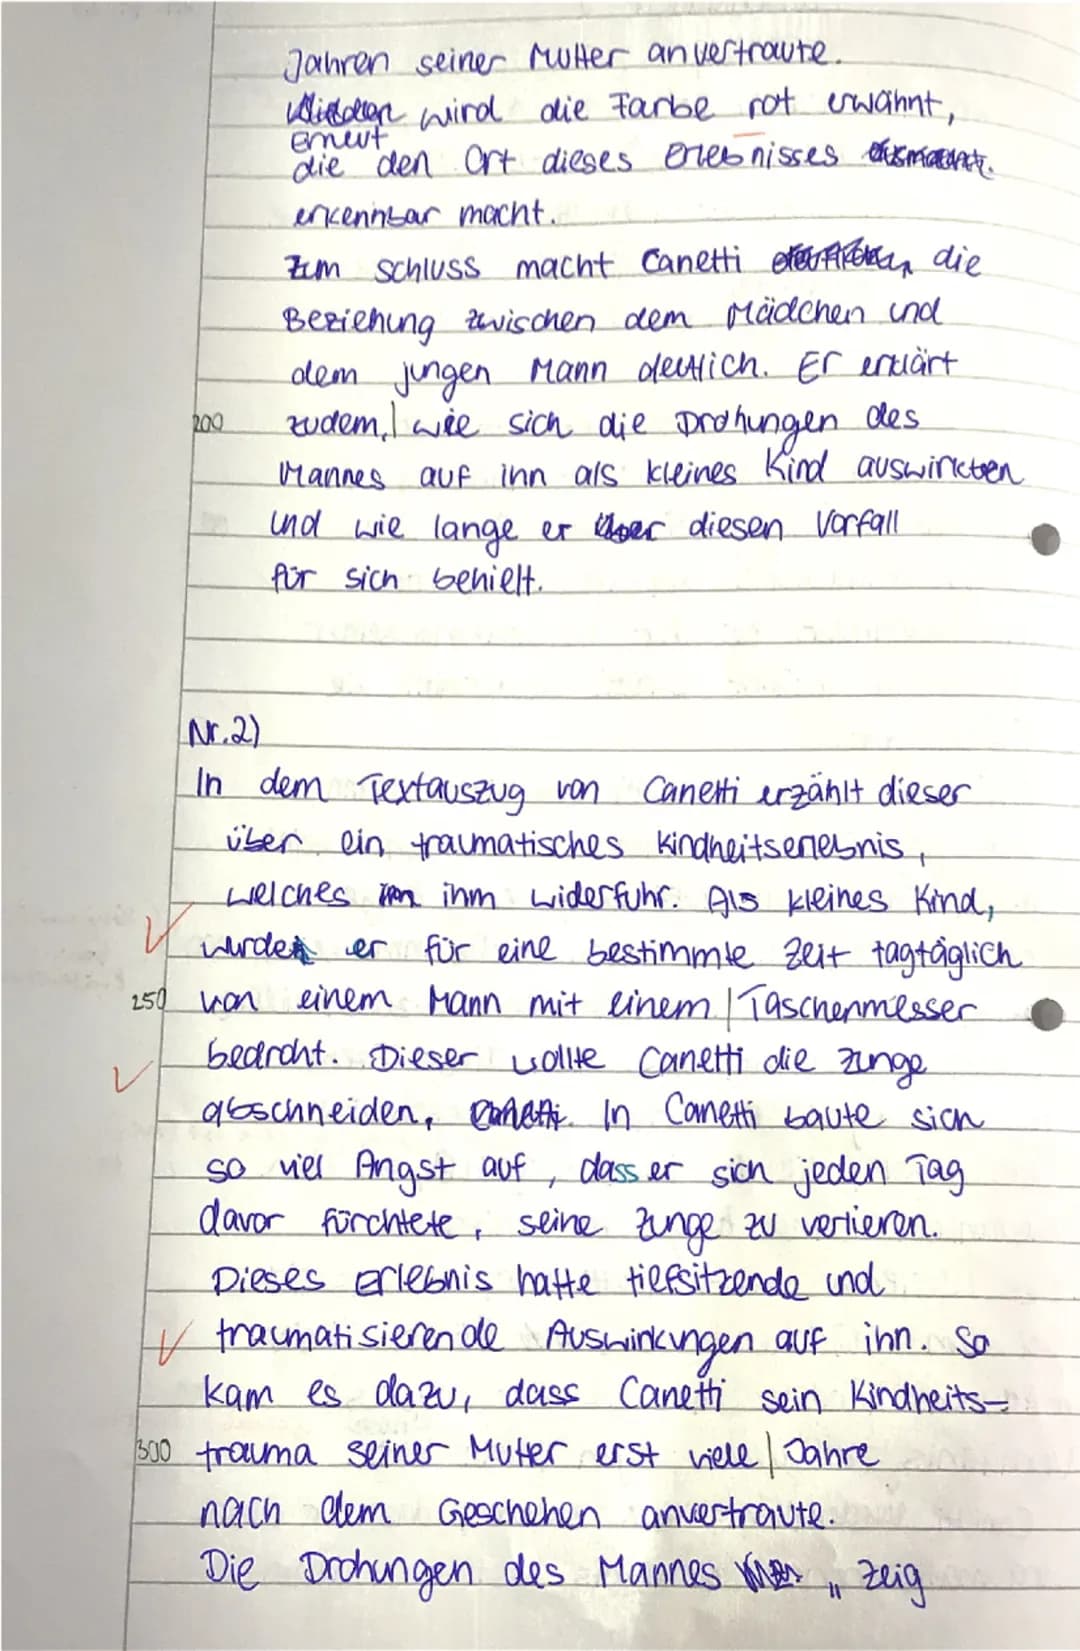 Jahren seiner Mutter anvertraute.
wird die Farbe rot erwähnt,
erneut
die den Ort dieses Erlebnisses
erkennbar macht.
Zum Schluss macht Canetti die
Beziehung zwischen dem Mädchen und
dem jungen Mann deutlich. Er erklärt
200 zudem,| wie sich die Drohungen des
Mannes auf ihn als kleines Kind auswirkten
und wie lange er diesen Vorfall
für sich behielt.
Nr.2)
In dem Textauszug von Canetti erzählt dieser
über ein traumatisches Kindheitserlebnis,
welches ihm widerfuhr. Als kleines Kind,
wurde er für eine bestimmte Zeit tagtäglich
250 von einem Mann mit einem | Taschenmesser
bedroht. Dieser wollte Canetti die Zunge
abschneiden. In Canetti baute sich
so viel Angst auf, dass er sich jeden Tag
davor fürchtete, seine Zunge zu verlieren.
Dieses Erlebnis hatte tiefsitzende und
traumatisierende Auswirkungen auf ihn. So
kam es dazu, dass Canetti sein Kindheits-
300 trauma seiner Mutter erst viele | Jahre
nach dem Geschehen anvertraute.
Die Drohungen des Mannes „ Zeig